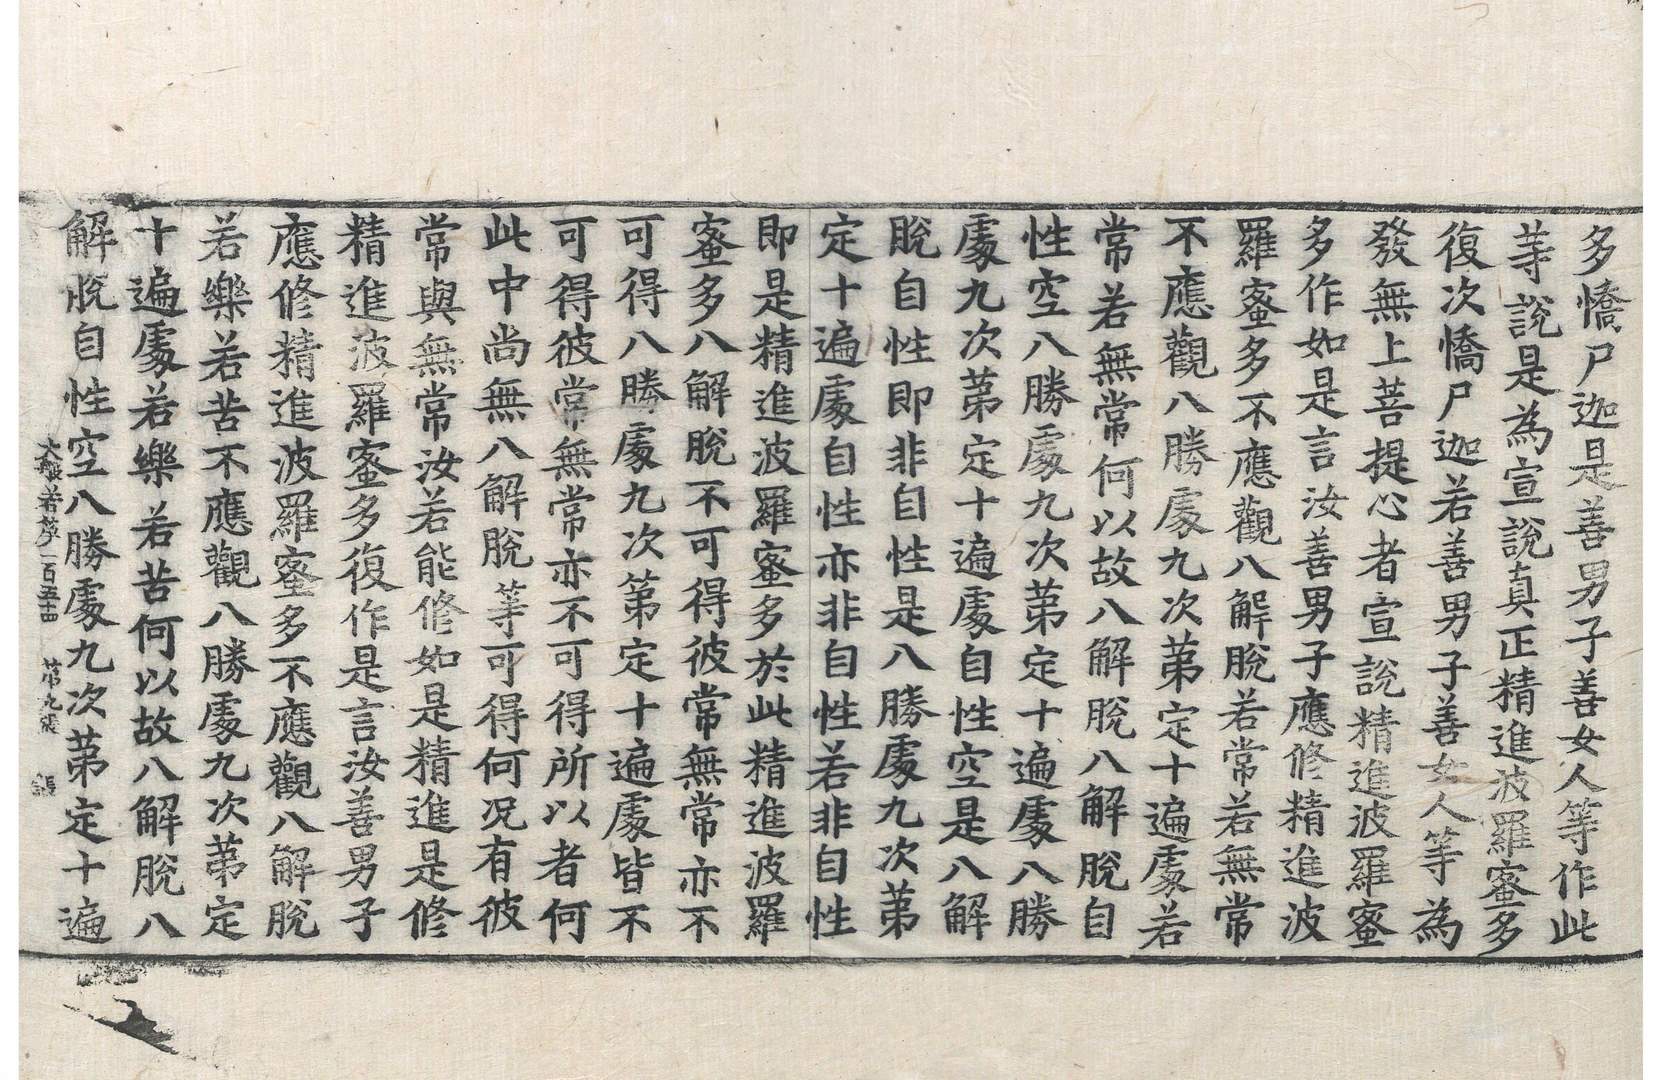 多憍尸迦是善男子善女人等作此
等說是為宣說真正精進波羅蜜多
復次憍尸迦若善男子善女人等為
發無上菩提心者宣說精進波羅蜜
多作如是言汝善男子應修精進波
羅蜜多不應觀八解脫若常若無常
不應觀八勝處九次第定十遍處若
常若無常何以故八解脫八解脫自
性空八勝處九次第定十遍處八勝
處九次第定十遍處自性空是八解
脫自性即非自性是八勝處九次第
定十遍處自性亦非自性若非自性
即是精進波羅蜜多於此精進波羅
蜜多八解脫不可得彼常無常亦不
可得八勝處九次第定十遍處皆不
可得彼常無常亦不可得所以者何
此中尚無八解脫等可得何況有彼
常與無常汝若能修如是精進是修
精進波羅蜜多復作是言汝善男子
應修精進波羅蜜多不應觀八解脫
若樂若苦不應觀八勝處九次第定
十遍處若樂若苦何以故八解脫八
解脫自性空八勝處九次第定十遍
大般若経一百五十四 第九張